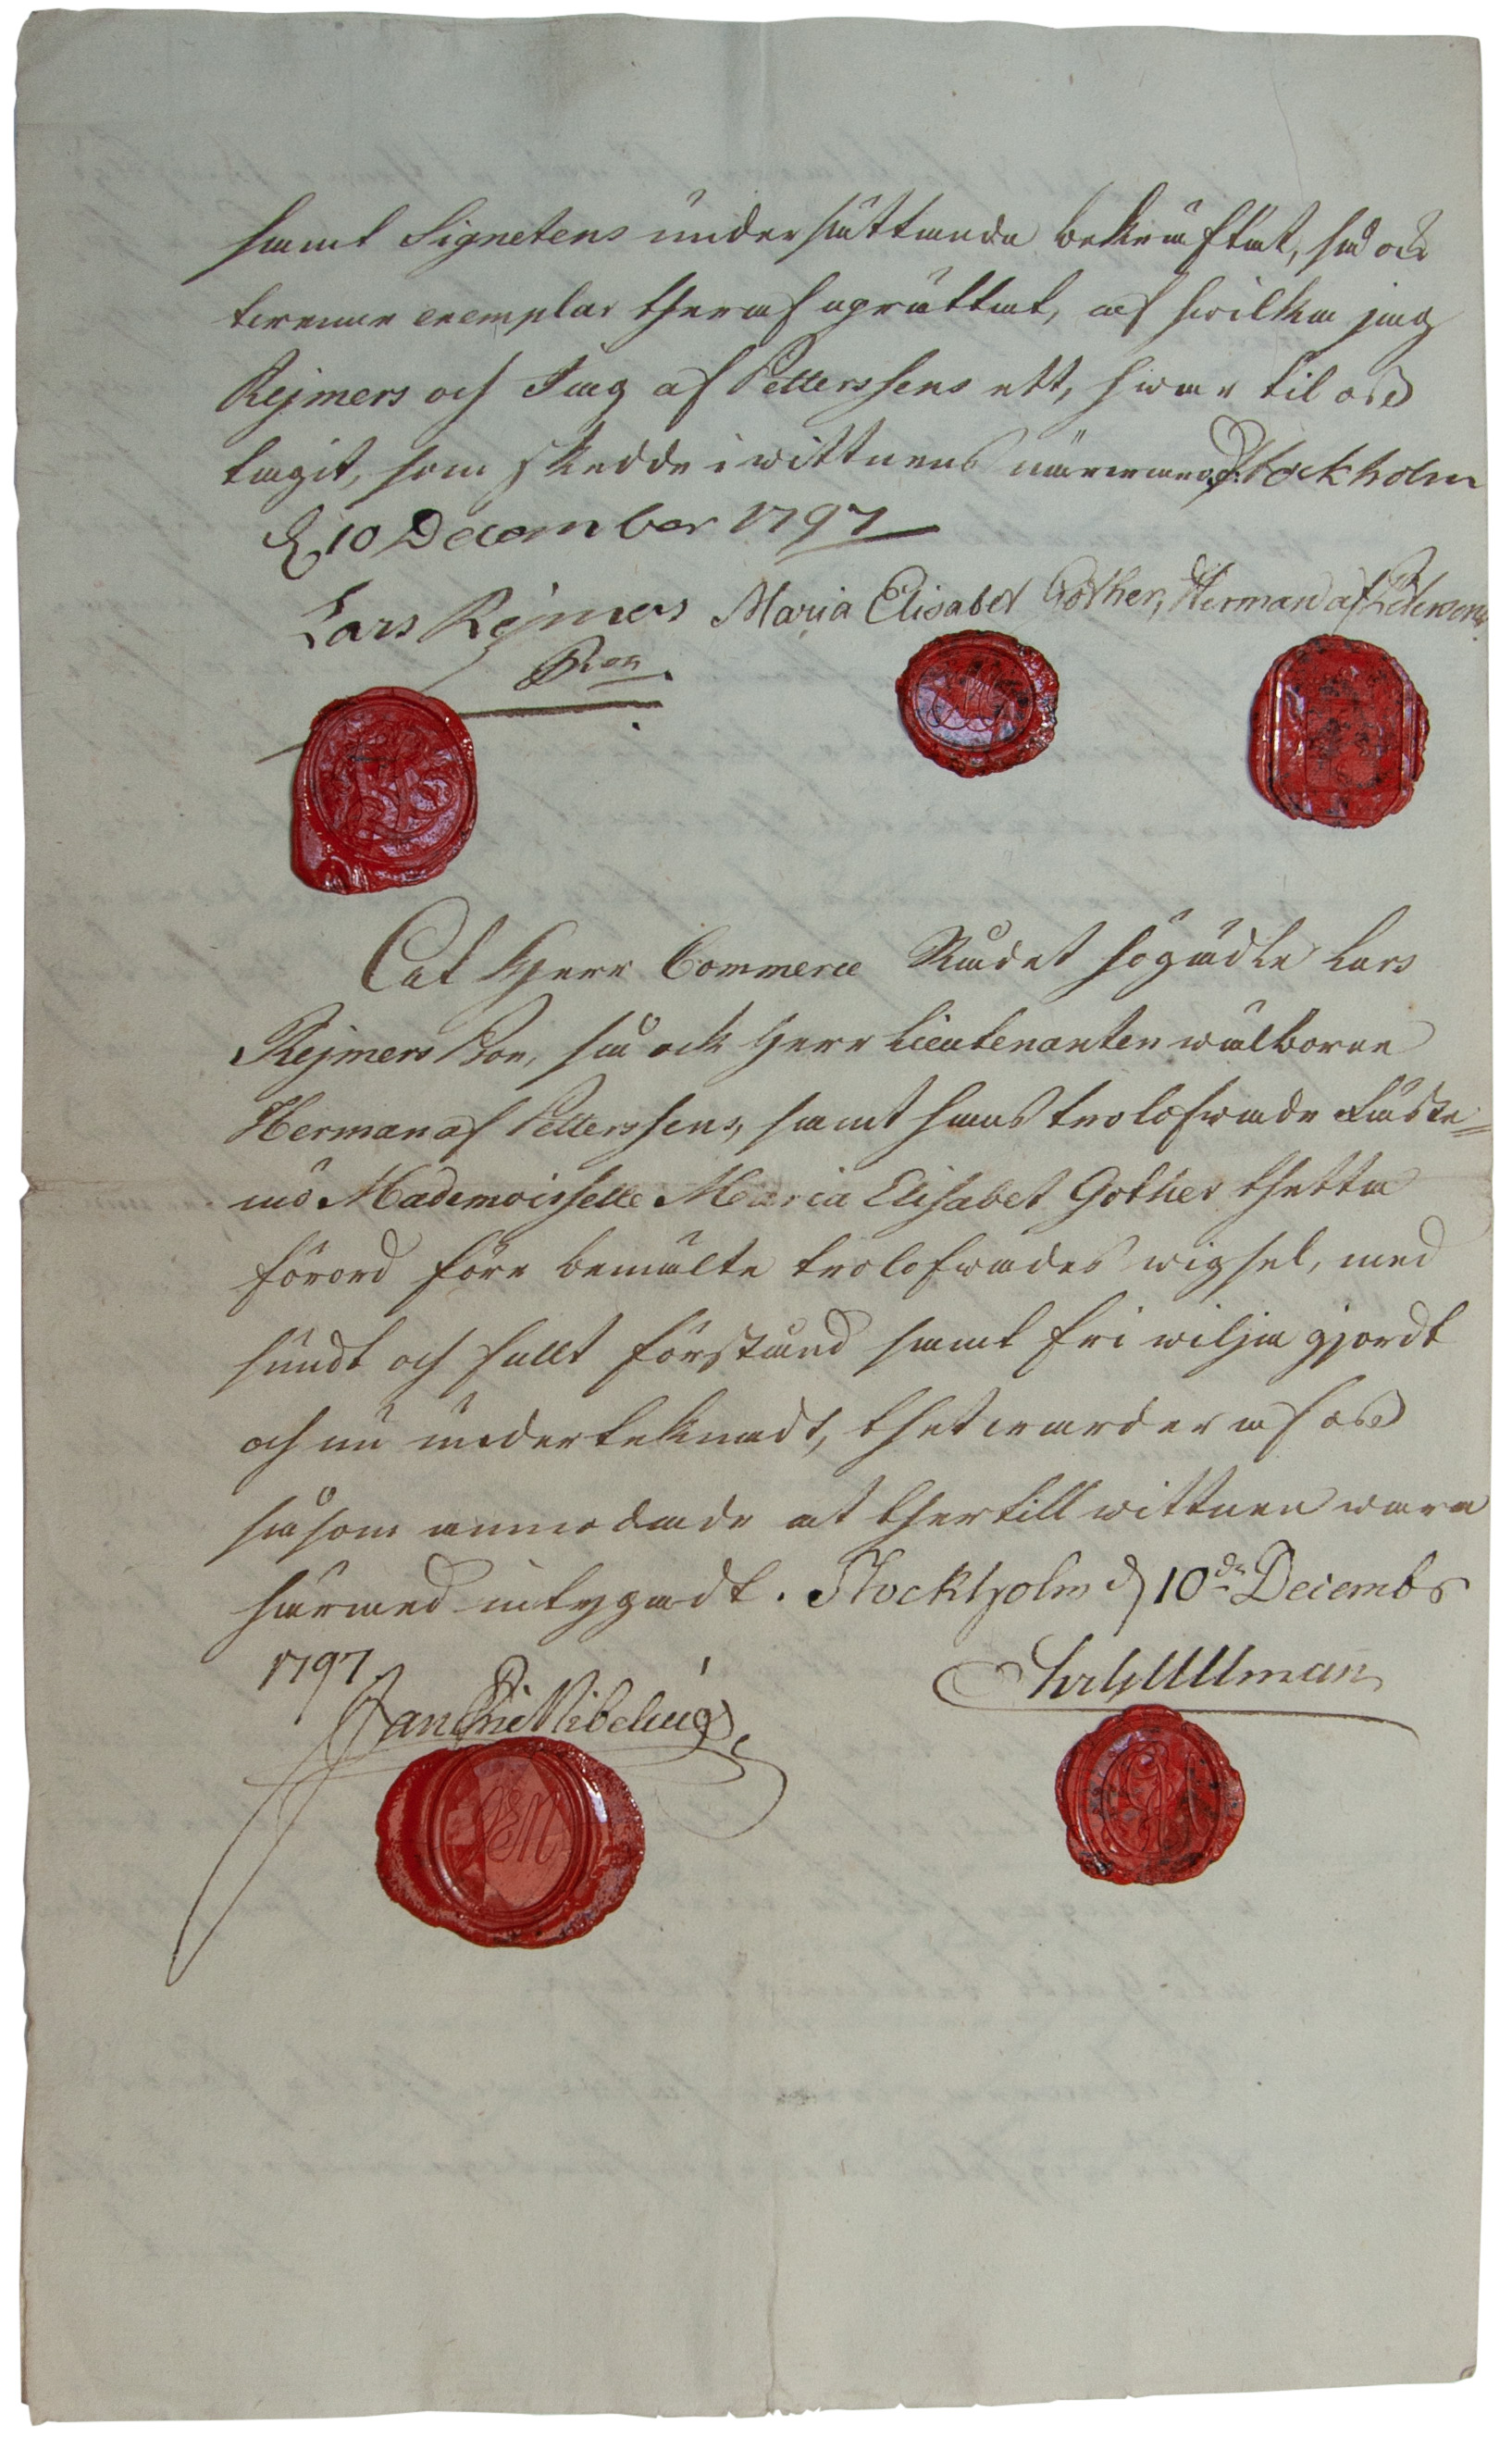 samt Signetens undersättande bekräftat, så ock
trenne exemplar theraf uprättat, af hwilka jag
Rejmers och Jag af Petterssens ett, hwar til oss
tagit, som skedde i wittnens närwaro. Stockholm
d 10 December 1797
Lars Rejmers Maria Elisabet Göther, Herman af Petersens
Son
At Herr Commerce Rådet högädle Lars
Rejmers Son, så ock Herr Lieutenanten wälborne
Herman af Petterssens, samt hans trolofwade Fäste=
mö Mademoisselle Maria Elisabet Göther thetta
förord före bemälte trolofwades wigsel, med
sundt och fullt förstånd samt fri wilja gjordt
och nu underteknadt, thet warder af oss
såsom anmodade at thertill wittnen wara
härmed intygadt. Stockholm d 10de Decembr
1797
Jan Eric Nibelius
Ullman
JEN